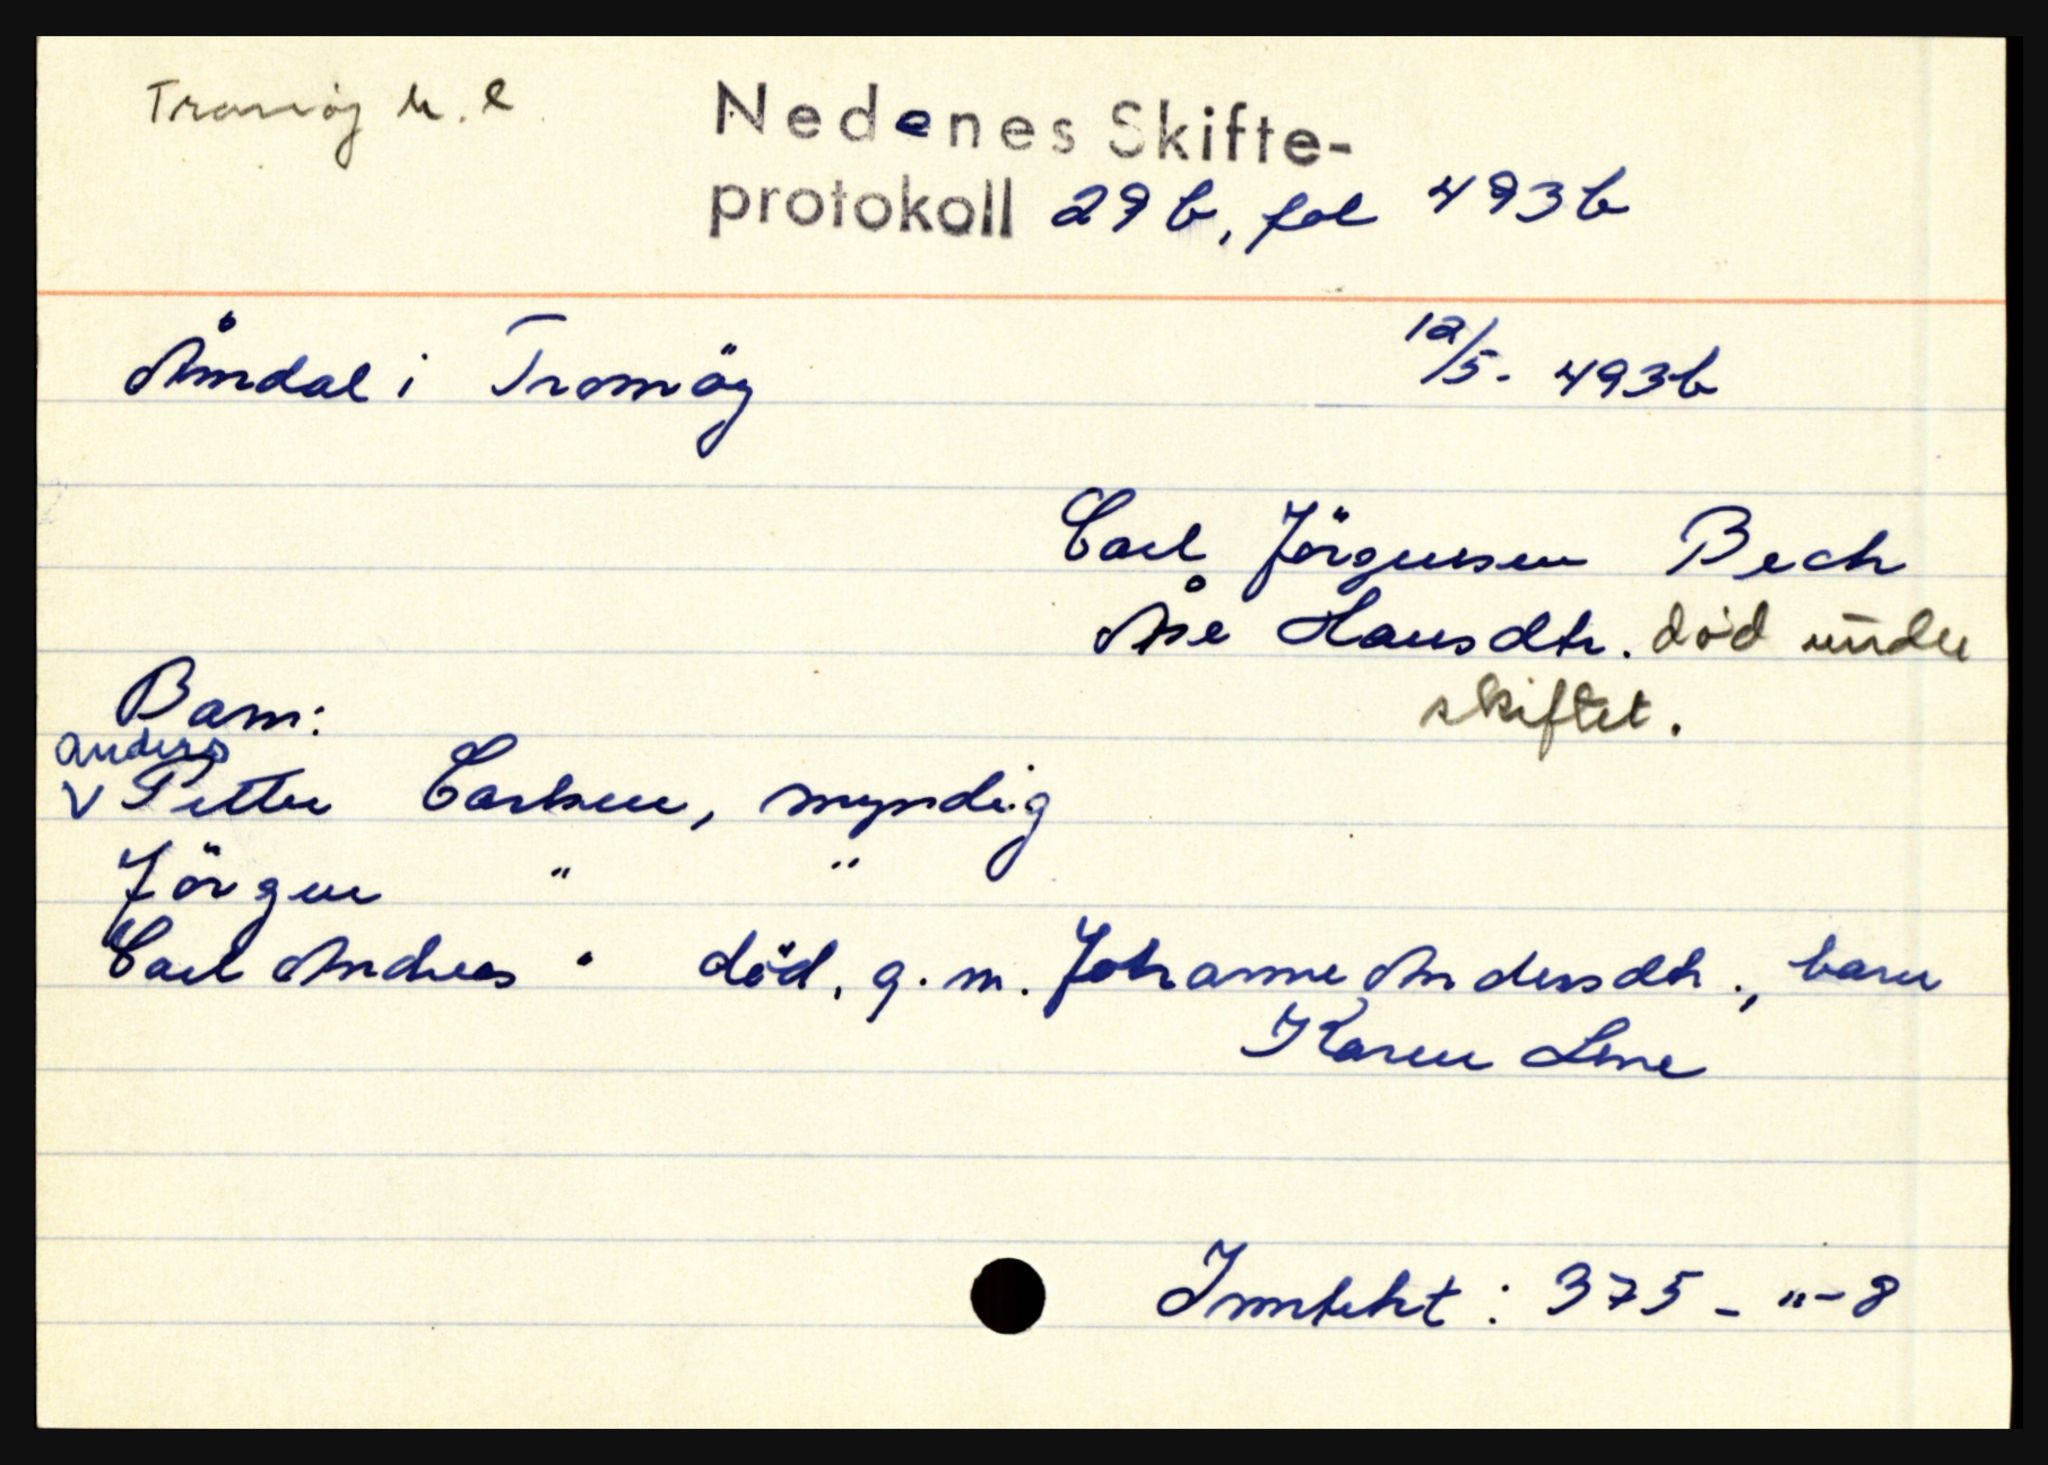 Tromöy h.l.
Nedenes Skifte-
protokoll 29b, fol 493b
Åmdal i Tromöy 12/5. 493b
Carl Jörgensen Bech
Åse Hansdtr. död under
skiftet.
Barn:
Anders
V Petter Carlsen, myndig
Jörgen " "
Carl Andreas " död, g.m. Johanne Andersdtr., barn
Karen Lene
Inntekt: 375 - " - 8